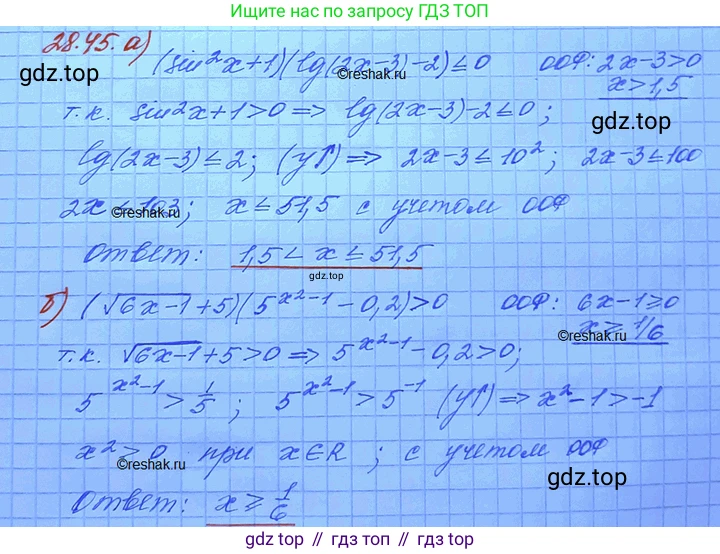 Ищите нас по запросу ГДЗ ТОП
28.45. а) (sin²x+1)(lg(2x-3)-2)≤0 ООФ: 2x-3>0
gdz.top ©reshak.ru x>1,5
т.к. sin²x+1>0 => lg(2x-3)-2≤0;
gdz.top
lg(2x-3)≤2; (у↑) => 2x-3≤10²; 2x-3≤100
2x≤103; x≤51,5 с учетом ООФ
©reshak.ru
Ответ: 1,5<x≤51,5
gdz.top
б) (√6x-1+5)(5^(x²-1)-0,2)>0 ООФ: 6x-1≥0
©reshak.ru x≥1/6
т.к. √6x-1+5>0 => 5^(x²-1)-0,2>0;
5^(x²-1)>1/5; 5^(x²-1)>5^(-1) (у↑) => x²-1>-1
x²>0 при x∈R; с учетом ООФ
©reshak.ru gdz.top
Ответ: x≥1/6
gdz.top // gdz.top // gdz.top